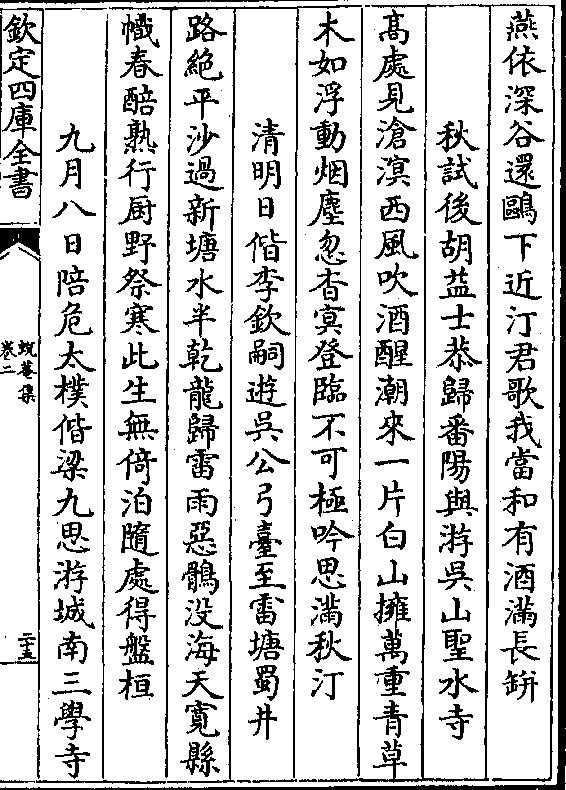 燕依深谷還鷗下近汀君歌我當和有酒滿長缾
秋試後胡益士恭歸番陽與游吳山聖水寺
髙處見滄溟西風吹酒醒潮來一片白山擁萬重青草
木如浮動烟塵忽杳㝠登臨不可極吟思滿秋汀
清明日偕李欽嗣遊吳公弓臺至雷塘蜀井
路絶平沙過新塘水半乾龍歸雷雨惡鶻没海天寛縣
幟春醅熟行厨野祭寒此生無倚泊隨處得盤桓
九月八日陪危太樸偕梁九思游城南三學寺
欽定四庫全書
蛻菴集
卷二
二十五